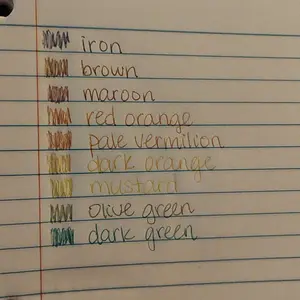 iron
brown
maroon
red orange
pale vermilion
dark orange
mustard
olive green
dark green